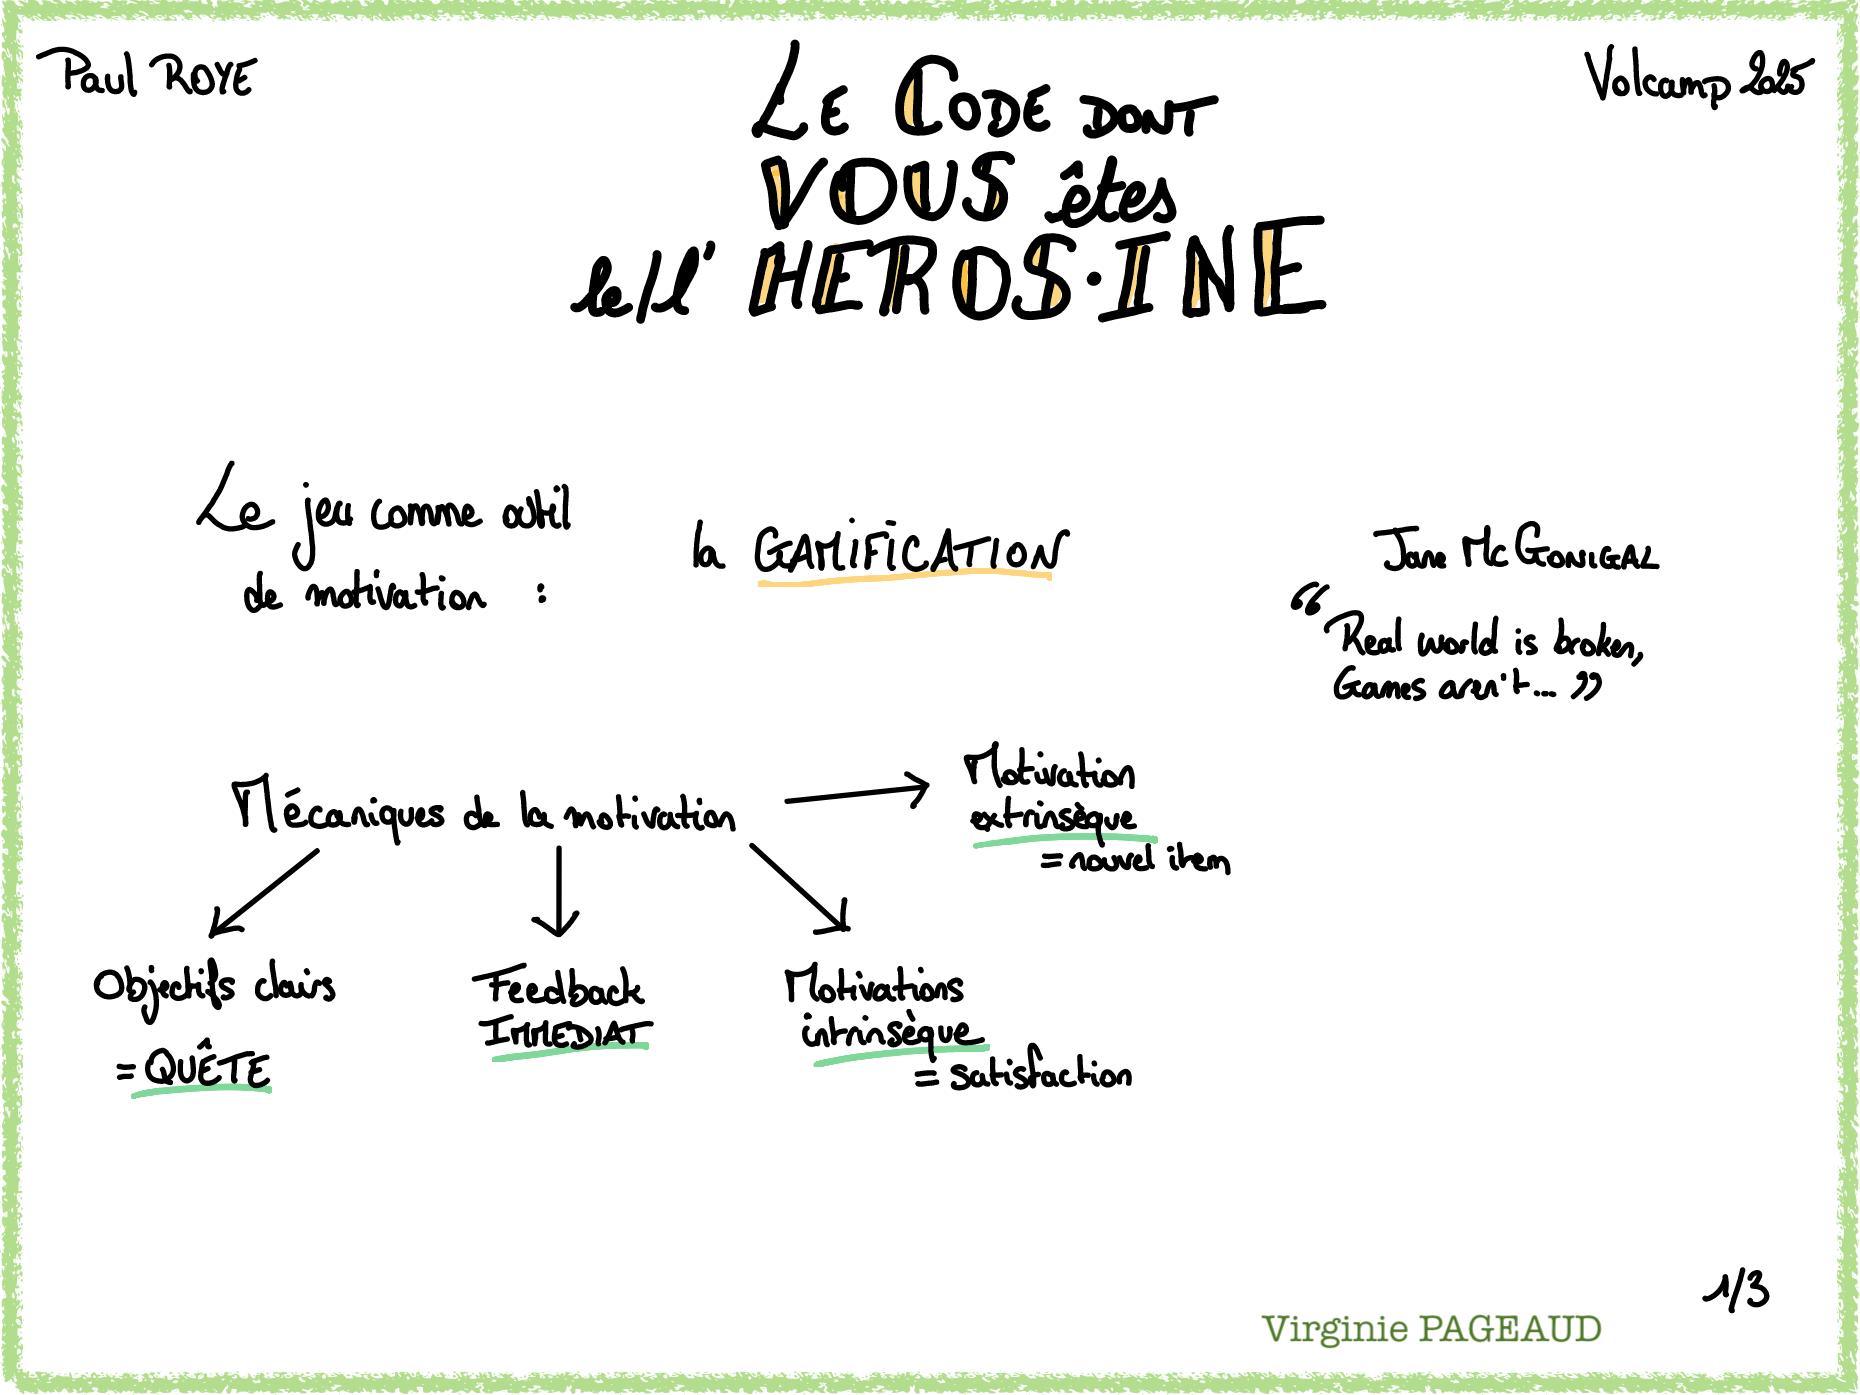 Paul ROYE
Volcamp 2025
LE CODE DONT
VOUS êtes
le/l' HEROS·INE
Le jeu comme outil
de motivation :
la GAMIFICATION
Jane Mc GONIGAL
“Real world is broken,
Games aren't... ”
Mécaniques de la motivation
Motivation
extrinsèque
= nouvel item
Objectifs clairs
= QUÊTE
Feedback
IMMEDIAT
Motivations
intrinsèque
= satisfaction
1/3
Virginie PAGEAUD